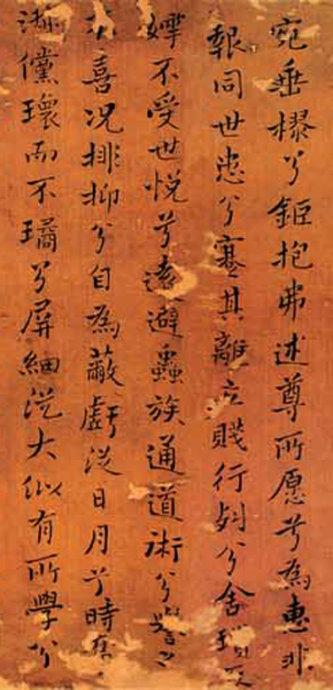 宛垂樛兮鉅抱弗述尊所愿兮為惠非
報同世患兮寋其離立賤行列兮舍
不受世悅兮遠避蟲族通道術兮之
不喜況排抑兮自為蔽虧從日月兮時
儻瓌而不璚兮屏細從大似有所學兮